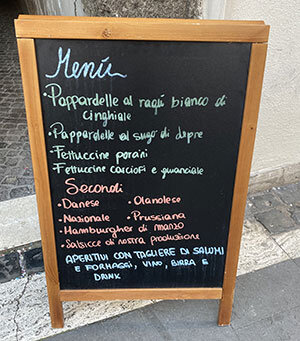 Menù
• Pappardelle al ragù bianco di
cinghiale
• Pappardelle al sugo di lepre
• Fettuccine porcini
• Fettuccine carciofi e guanciale
Secondi
• Danese • Olandese
• Nazionale • Prussiana
• Hamburgher di manzo
• Salsicce di nostra produzione
APERITIVI CON TAGLIERE DI SALUMI
E FORMAGGI, VINO, BIRRA E
DRINK